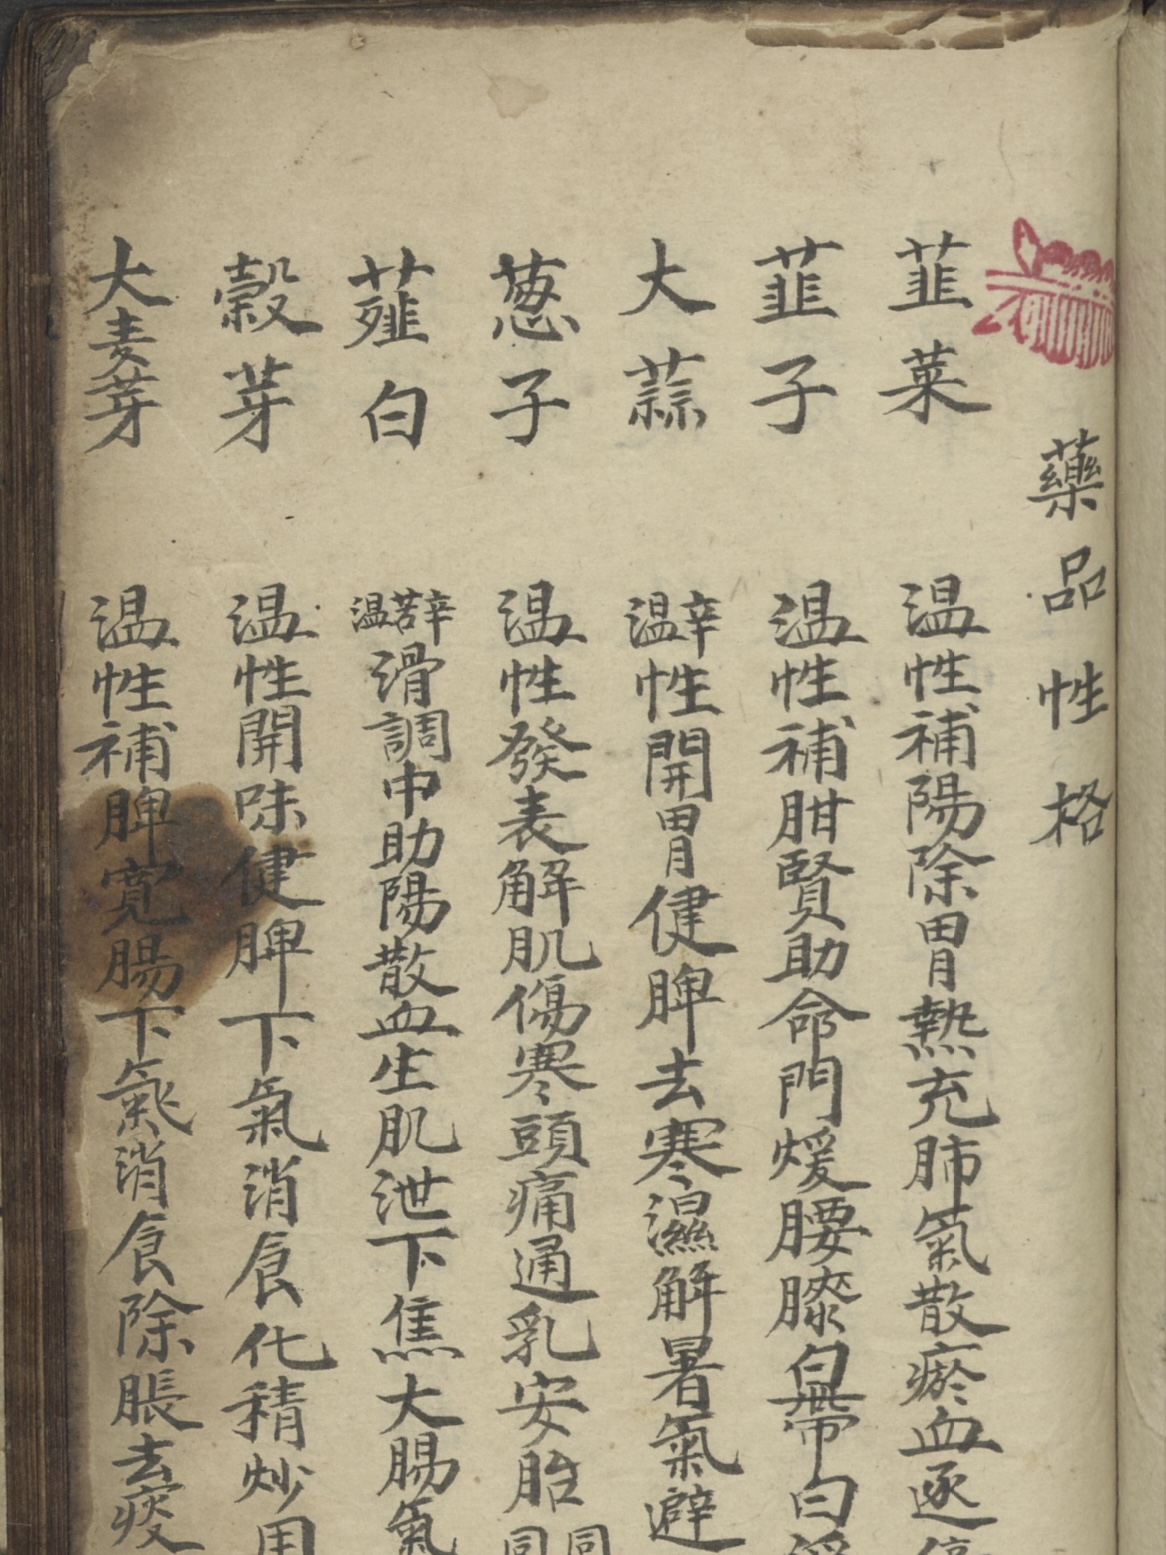 藥品性格
韮菜 温性補陽除胃熱充肺氣散瘀血逐停
韮子 温性補肝腎助命門煖腰膝白帶白淫
大蒜 辛温性開胃健脾去寒濕解暑氣避
葱子 温性發表解肌傷寒頭痛通乳安胎同同
薤白 辛苦温滑調中助陽散血生肌泄下焦大腸氣
穀芽 温性開味健脾下氣消食化積炒用
大麦芽 温性補脾寛腸下氣消食除脹去痰